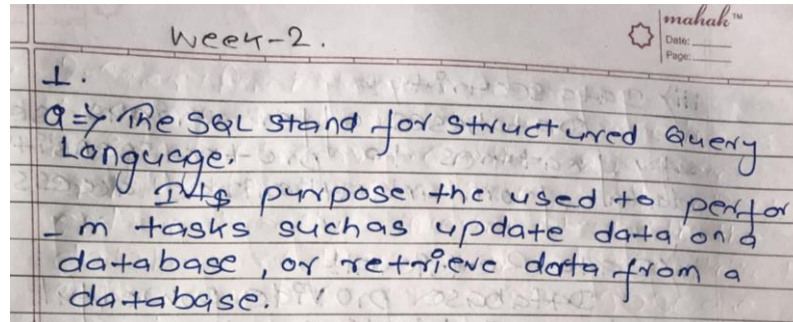 Week-2.
mahak™
Date:
Page:
1.
a=> The SQL stand for structured Query
Language.
Its purpose the used to perfor
-m tasks suchas update data on a
database, or retrieve data from a
database.